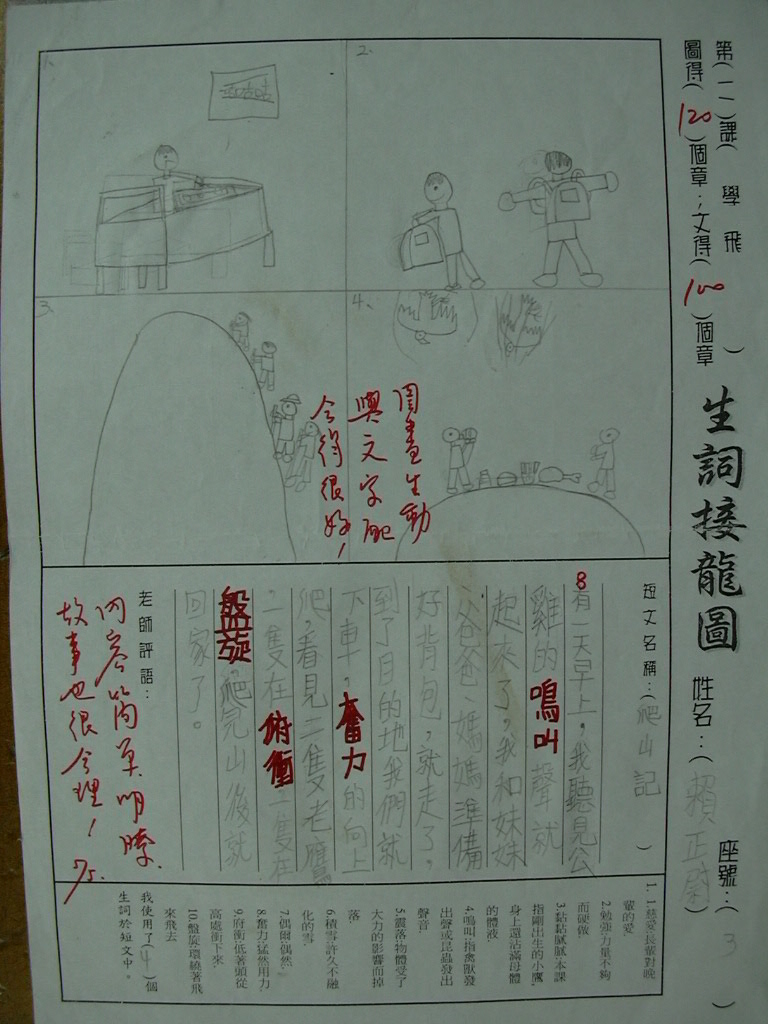 第(一一)課(學飛)
圖得(120)個章;文得(100)個章
生詞接龍圖
姓名:(賴正)
座號:(3)
1.
2.
3.
4.
圖畫生動
與文字配
合得很好!
短文名稱:(爬山記)
8
有一天早上,我聽見公
雞的鳴叫聲就
起來了,我和妹妹
、爸爸、媽媽準備
好背包,就走了,
到了目的地我們就
下車,奮力的向上
爬,看見二隻老鷹
一隻在俯衝一隻在
盤旋,爬完山後就
回家了。
老師評語:
內容簡單明瞭
故事也很合理!
1.慈愛:長輩對晚
輩的愛
2.勉強:力量不夠
而硬做
3.黏黏膩膩:本課
指剛出生的小鷹,
身上還沾滿母體
的體液
4.鳴叫:指禽獸發
出聲或昆蟲發出
聲音
5.震落:物體受了
大力的影響而掉
落
6.積雪:許久不融
化的雪.
7.偶爾:偶然.
8.奮力:猛然用力.
9.府衝:低著頭從
高處衝下來.
10.盤旋:環繞著飛
來飛去
我使用了(4)個
生詞於短文中。